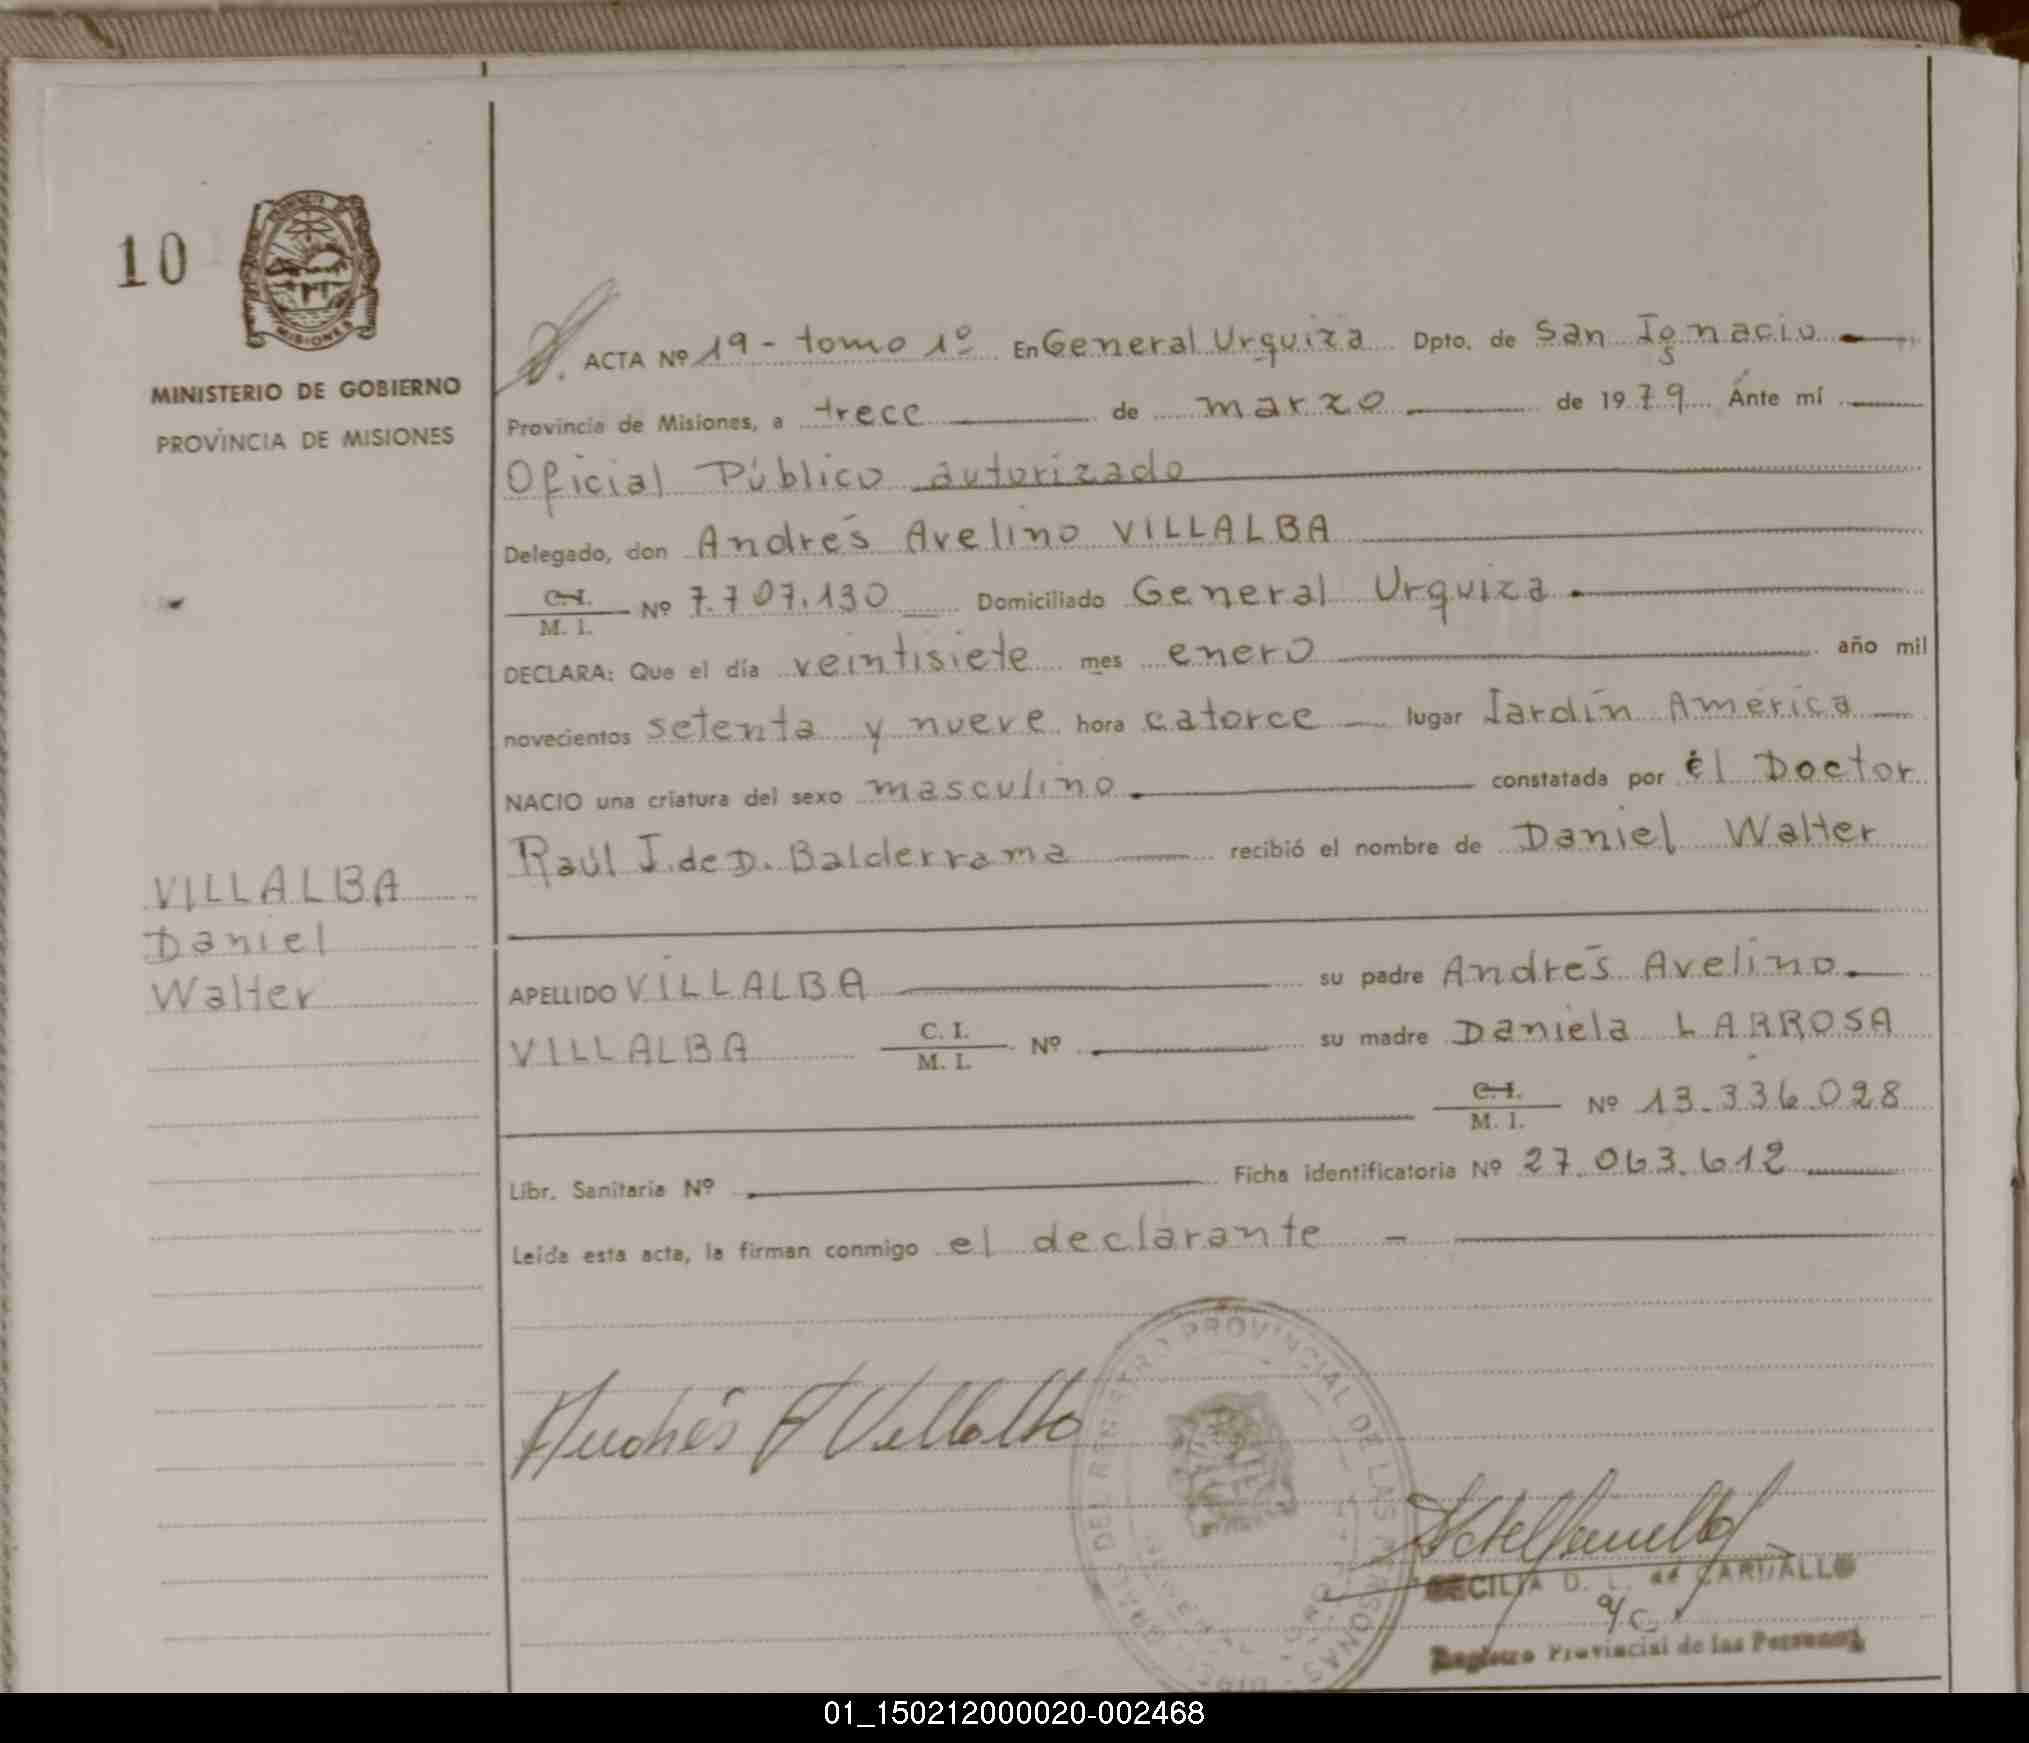 10
MISIONES
MINISTERIO DE GOBIERNO
PROVINCIA DE MISIONES
VILLALBA
Daniel
Walter
ACTA Nº 19 - tomo 1º En General Urquiza Dpto. de San Ignacio
Provincia de Misiones, a trece de marzo de 1979 Ante mí
Oficial Público autorizado
Delegado, don Andrés Avelino VILLALBA
C.I. / M. I. Nº 7.707.130 Domiciliado General Urquiza
DECLARA: Que el día veintisiete mes enero año mil
novecientos setenta y nueve hora catorce lugar Jardín América
NACIO una criatura del sexo masculino constatada por el Doctor
Raúl J. de D. Balderrama recibió el nombre de Daniel Walter
APELLIDO VILLALBA su padre Andrés Avelino
VILLALBA C. I. / M. I. Nº su madre Daniela LARROSA
C.I. / M. I. Nº 13.336.028
Libr. Sanitaria Nº Ficha identificatoria Nº 27.063.612
Leída esta acta, la firman conmigo el declarante -
Andrés A Villalba
DEL REGISTRO PROVINCIAL DE LAS PERSONAS
CECILIA D. L. de CARVALLO
a/c
Registro Provincial de las Personas
01_150212000020-002468